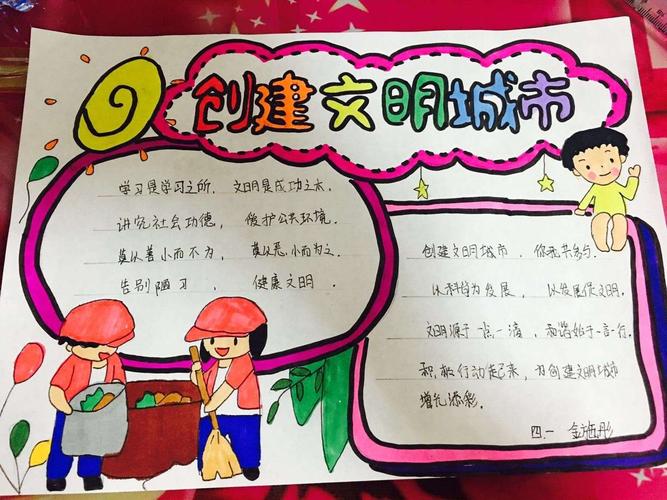 创建文明城市
学习是学习之所, 文明是成功之本,
讲究社会功德, 爱护公共环境.
莫以善小而不为, 莫以恶小而为之.
告别陋习, 健康文明.
创建文明城市, 你我共参与.
以科技为发展, 以发展促文明.
文明源于一点一滴, 和谐始于一言一行.
积极行动起来, 为创建文明城市
增光添彩。
四.一